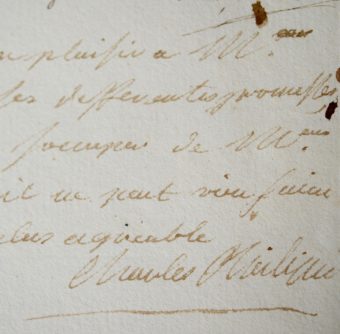 plaisir a M.
ses differentes promesses
de M.
il ne peut rien faire
plus agreable
Charles Philippe